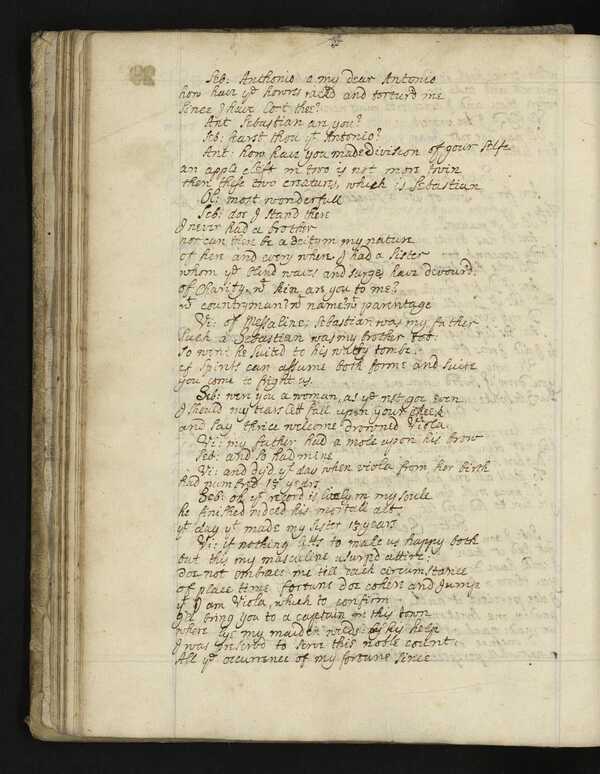 Seb: Anthonio o my dear Antonio
how have ye howrs rackd and torturd me
since I have lost thee?
Ant Sebastian are you?
Seb: fearst thou yt Antonio?
Ant: how have you made division of your selfe
an apple cleft in two is not more twin
then these two creatures, which is Sebastian
Ol: most wonderfull
Seb: doe I stand there
I never had a brother
nor can there be a deity in my nature
of here and every where I had a sister
whom ye blind waves and surges have devourd:
of Charity, wt kin are you to me?
wt countryman? wt name? wt parentage
Vi: of Messaline; Sebastian was my father
Such a Sebastian was my brother too:
So went he suited to his watry tombe.
if spirits can assume both forme and suite
you come to fright us.
Seb: were you a woman, as ye rest goe even
I should my tears let fall upon your cheek
and say thrice welcome drowned Viola
Vi: my father had a mole upon his brow
Seb: and so had mine
Vi: and dyd yt day when viola from her birth
had numbred 13 years
Seb: oh yt record is lively in my soule
he finished indeed his mortall act
yt day yt made my sister 13 years
Vi: if nothing letts to make us happy both
but this my masculine usurpd attire:
doe not embrace me till each circumstance
of place time fortune doe cohere and Jump
yt I am Viola, which to confirm
Ile bring you to a captain in this town
where lye my maiden weeds: by his help
I was to serve this noble count
All ye occurrence of my fortune since